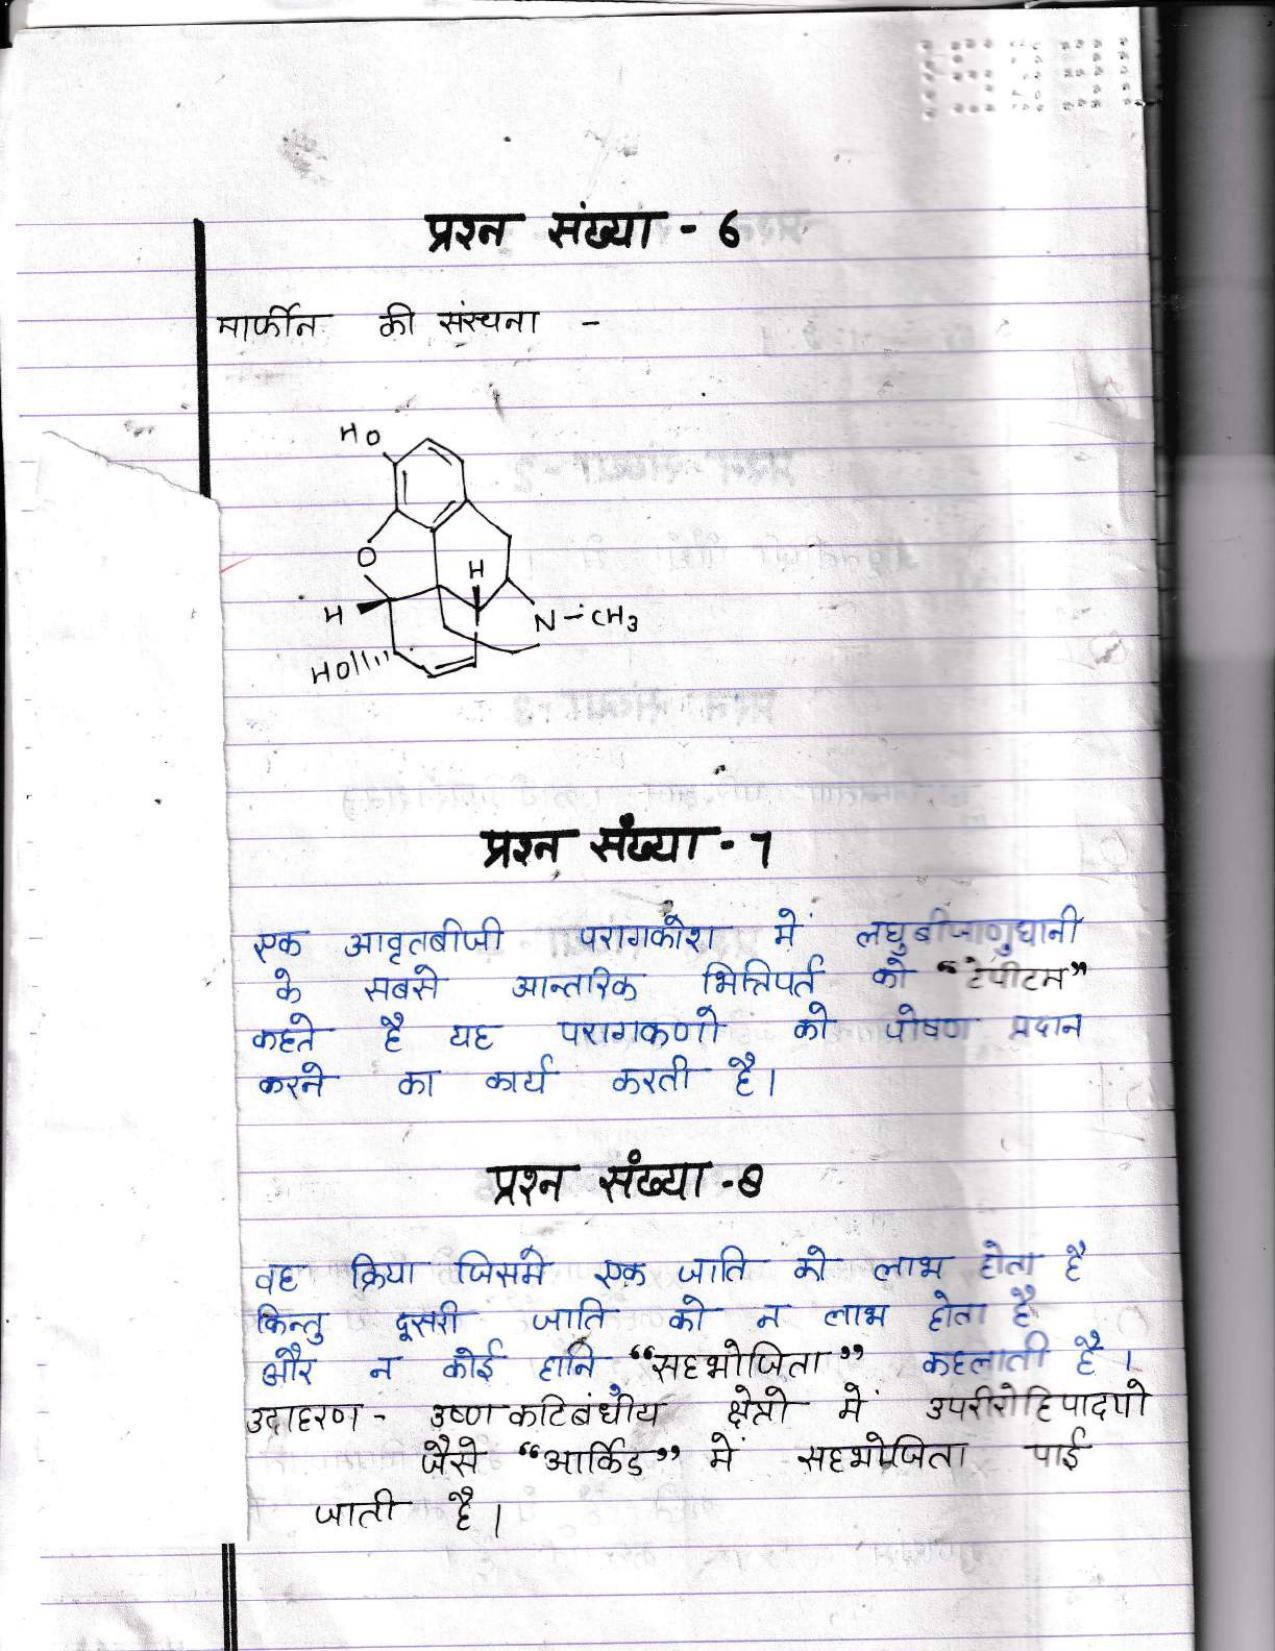 प्रश्न संख्या - 6
मार्फीन की संरचना -
HO
O
H
H
N - CH3
HO
प्रश्न संख्या - 7
एक आवृतबीजी परागकोश में लघुबीजाणुधानी
के सबसे आन्तरिक भित्तिपर्त को "टेपीटम"
कहते है यह परागकणो को पोषण प्रदान
करने का कार्य करती है।
प्रश्न संख्या - 8
वह क्रिया जिसमे एक जाति को लाभ होता है
किन्तु दूसरी जाति को न लाभ होता है
और न कोई हानि "सहभोजिता" कहलाती है।
उदाहरण - उष्ण कटिबंधीय क्षेत्रो में उपरीरोहिपादपो
जैसे "आर्किड" में सहभोजिता पाई
जाती है।